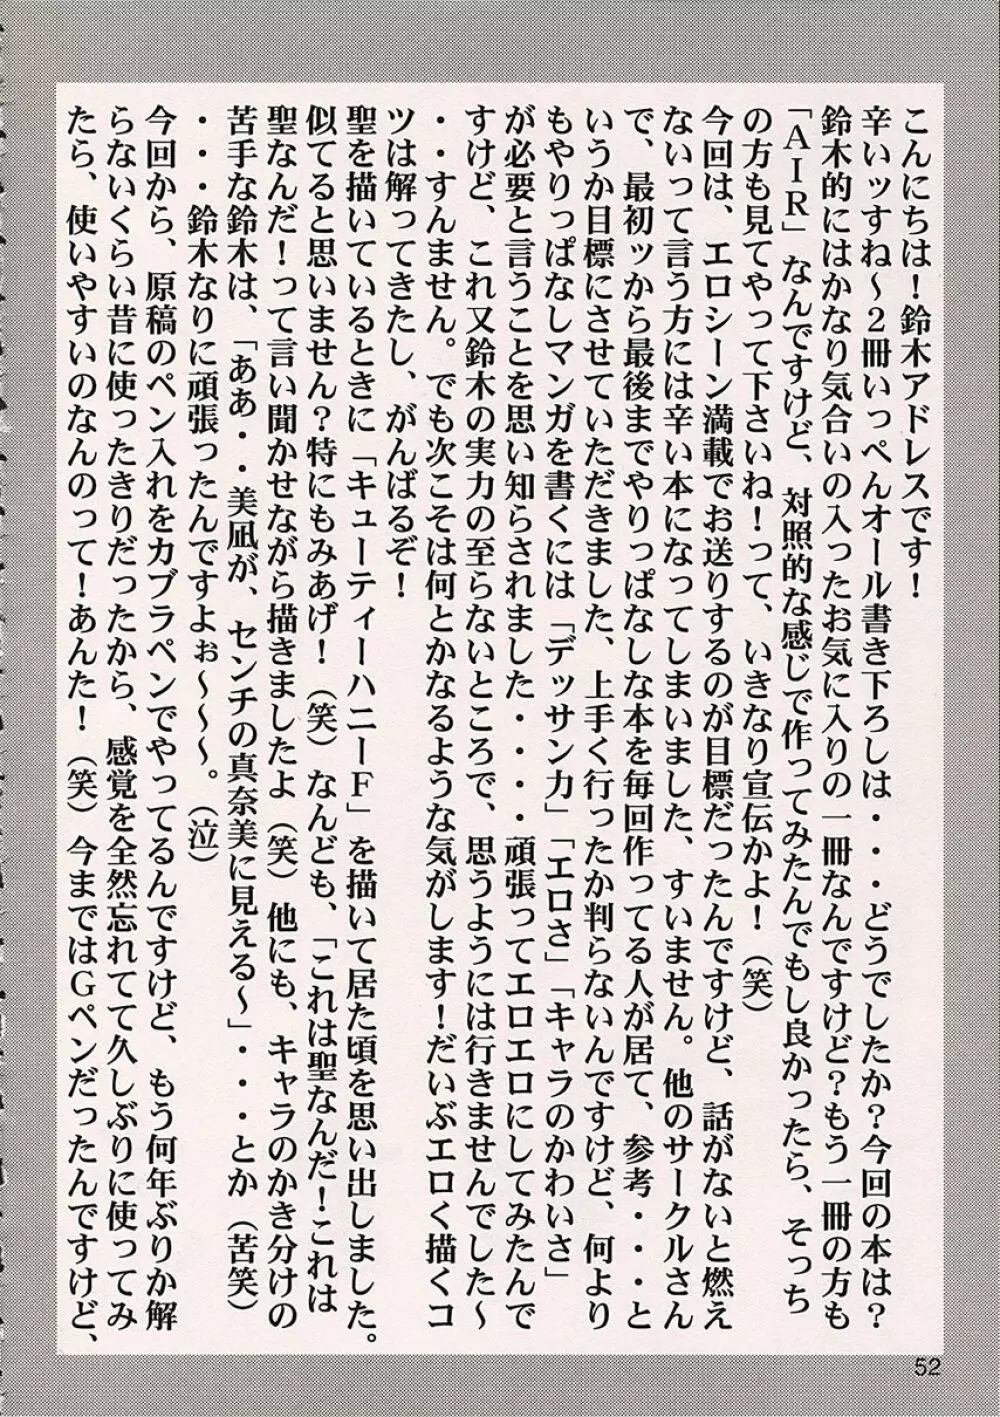 こんにちは！鈴木アドレスです！
辛いッすね～２冊いっぺんオール書き下ろしは・・・どうでしたか？今回の本は？
鈴木的にはかなり気合いの入ったお気に入りの一冊なんですけど？もう一冊の方も
「ＡＩＲ」なんですけど、対照的な感じで作ってみたんでもし良かったら、そっち
の方も見てやって下さいね！って、いきなり宣伝かよ！（笑）
今回は、エロシーン満載でお送りするのが目標だったんですけど、話がないと燃え
ないって言う方には辛い本になってしまいました、すいません。他のサークルさん
で、最初ッから最後までやりっぱなしな本を毎回作ってる人が居て、参考・・・と
いうか目標にさせていただきました、上手く行ったか判らないんですけど、何より
もやりっぱなしマンガを書くには「デッサン力」「エロさ」「キャラのかわいさ」
が必要と言うことを思い知らされました・・・・頑張ってエロエロにしてみたんで
すけど、これ又鈴木の実力の至らないところで、思うようには行きませんでした～
・・すんません。でも次こそは何とかなるような気がします！だいぶエロく描くコ
ツは解ってきたし、がんばるぞ！
聖を描いているときに「キューティーハニーＦ」を描いて居た頃を思い出しました。
似てると思いません？特にもみあげ！（笑）なんども、「これは聖なんだ！これは
聖なんだ！って言い聞かせながら描きましたよ（笑）他にも、キャラのかき分けの
苦手な鈴木は、「ああ・・美凪が、センチの真奈美に見える～」・・・とか（苦笑）
・・・鈴木なりに頑張ったんですよぉ～～～。（泣）
今回から、原稿のペン入れをカブラペンでやってるんですけど、もう何年ぶりか解
らないくらい昔に使ったきりだったから、感覚を全然忘れてて久しぶりに使ってみ
たら、使いやすいのなんのって！あんた！（笑）今まではＧペンだったんですけど、
52